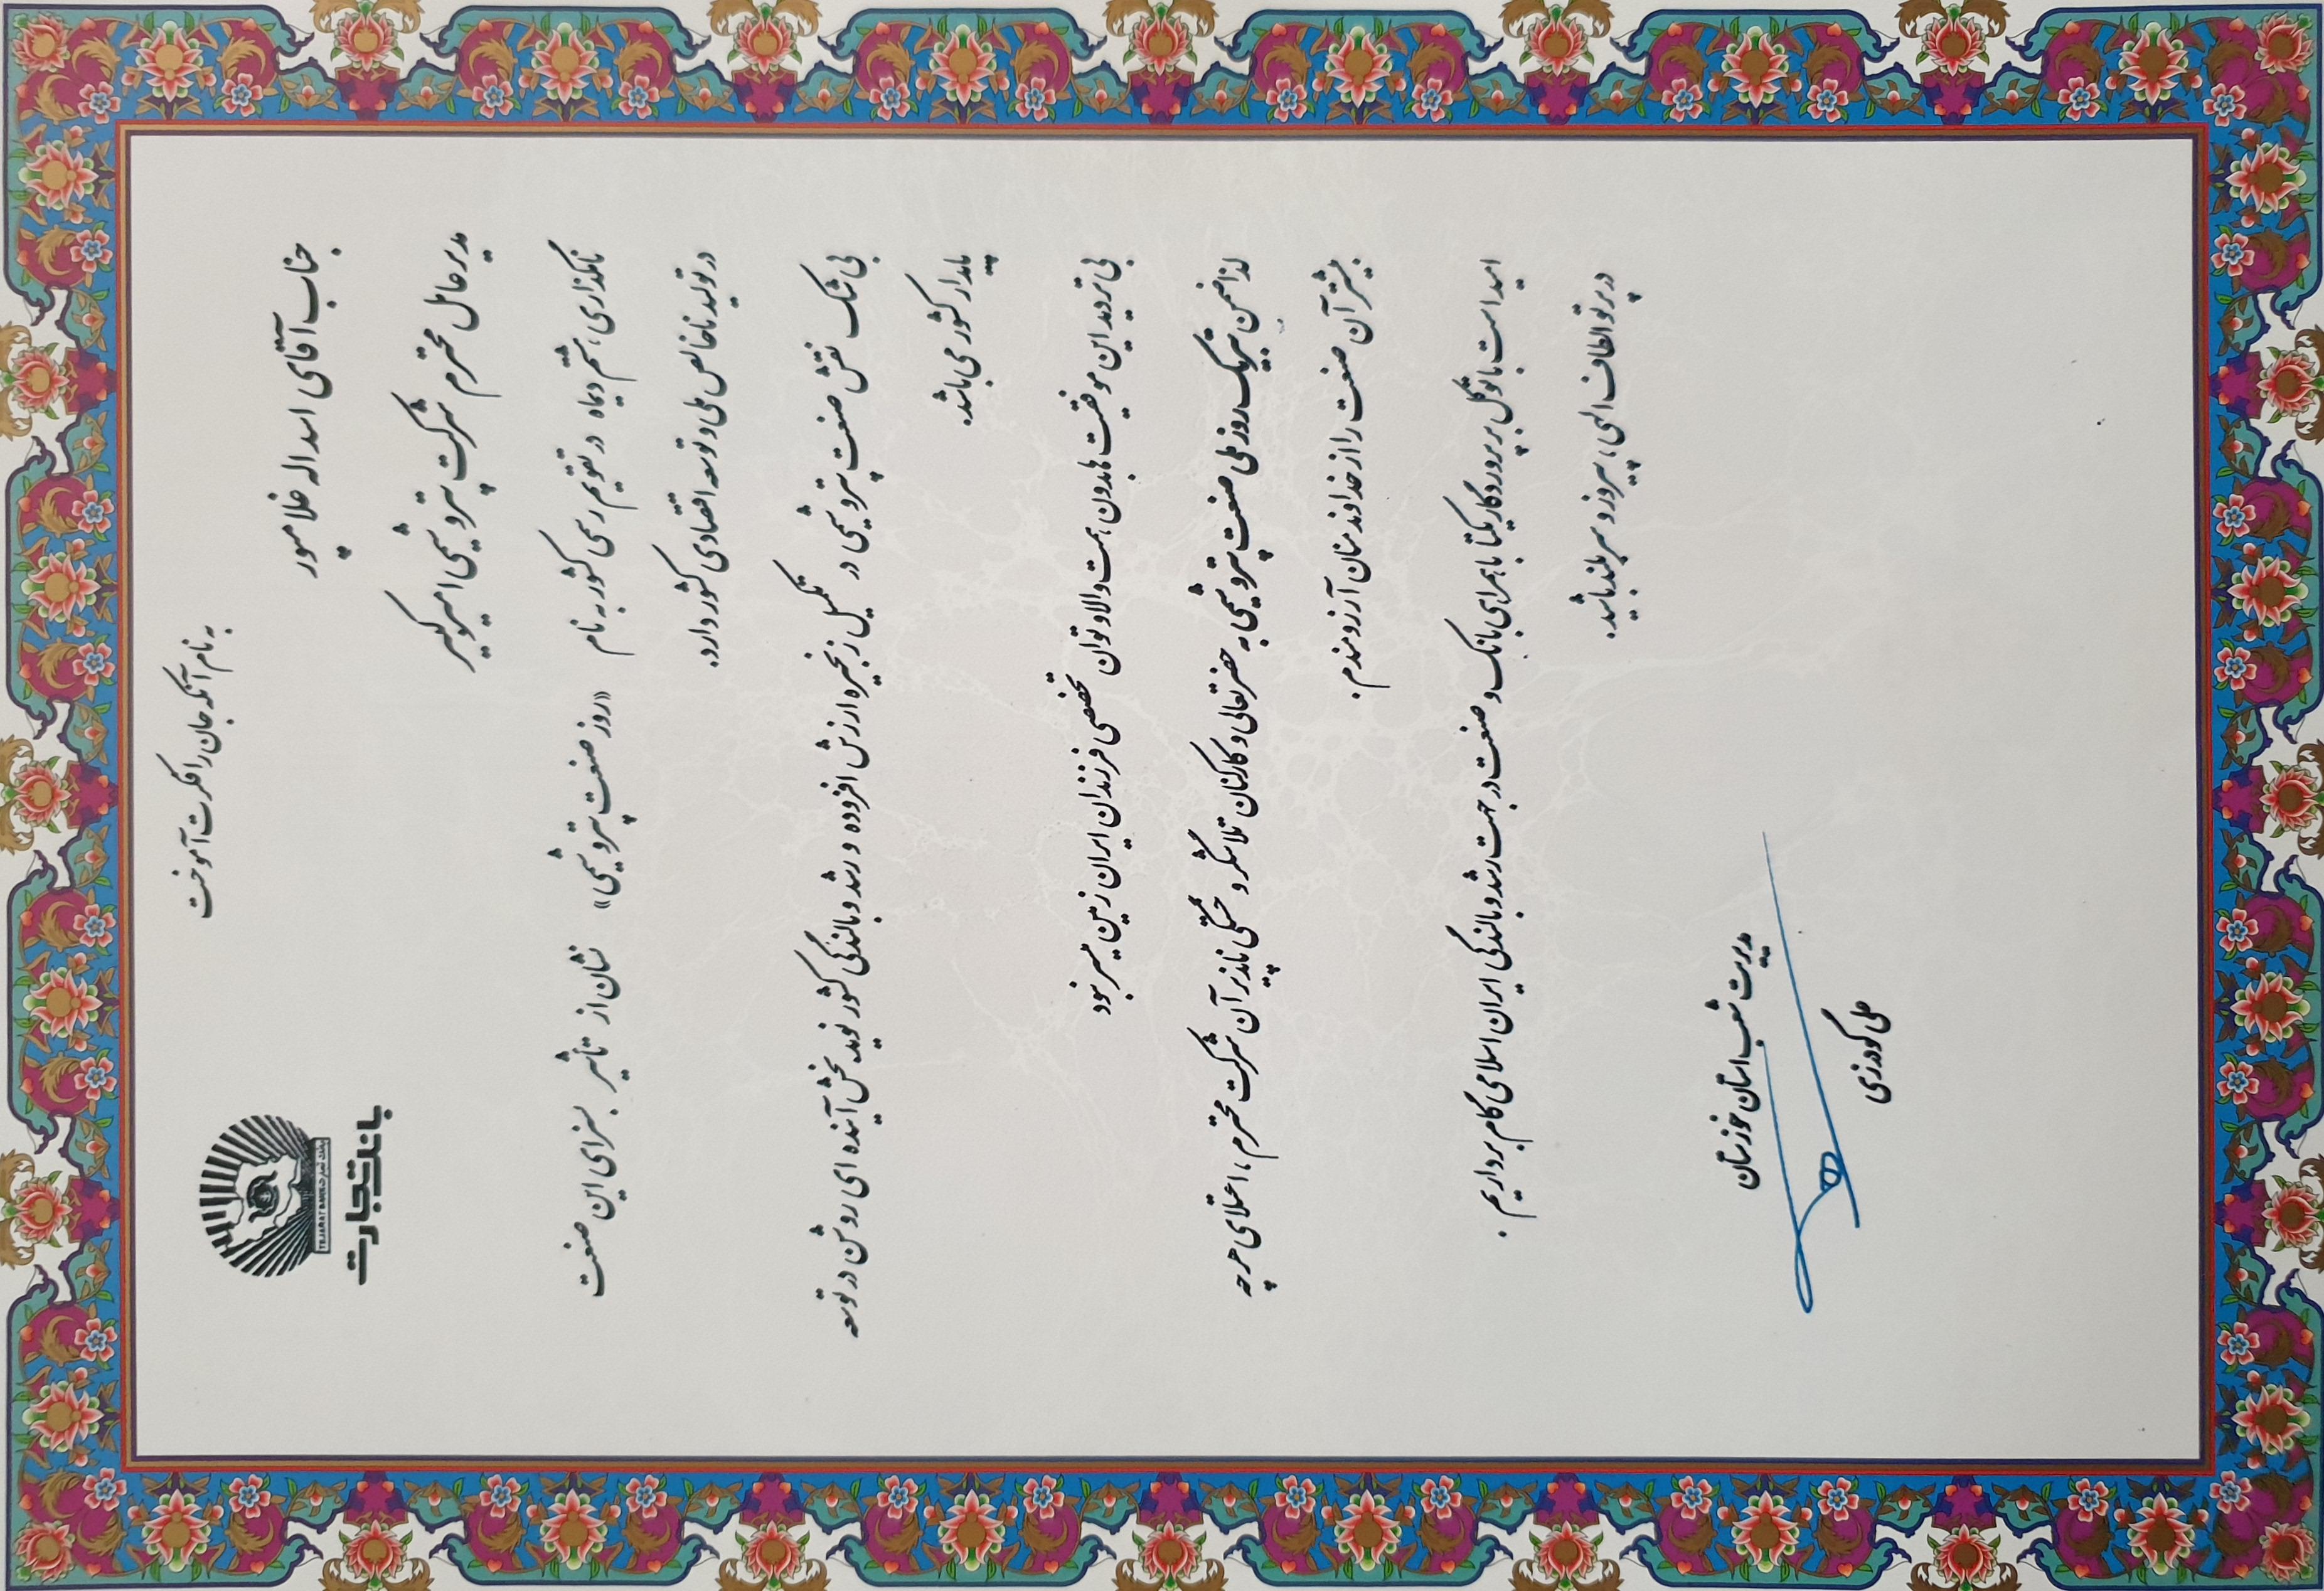 به نام آنکه جان را فکرت آموخت
TEJARAT BANK بانک تجارت
بانک تجارت
جناب آقای اسداله غلامپور
مدیرعامل محترم شرکت پتروشیمی امیرکبیر
نامگذاری هشتم دیماه در تقویم رسمی کشور به نام «روز صنعت پتروشیمی» نشان از تأثیر بسزای این صنعت
در تولید ناخالص ملی و توسعه اقتصادی کشور دارد.
بی شک نقش صنعت پتروشیمی در تکمیل زنجیره ارزش افزوده و رشد و بالندگی کشور نوید بخش آینده ای روشن در توسعه
پایدار کشور می باشد.
بی تردید این موفقیت ها بدون همت والا و توان تخصصی فرزندان ایران زمین میسر نبود
لذا ضمن تبریک روز ملی صنعت پتروشیمی به حضرتعالی و کارکنان تلاشگر و خستگی ناپذیر آن شرکت محترم، اعتلای هرچه
بیشتر آن صنعت را از خداوند منان آرزومندم.
امید است با توکل بر پروردگار یکتا با همراهی بانک و صنعت در جهت رشد و بالندگی ایران اسلامی گام برداریم.
در پرتو الطاف الهی، پیروز و سربلند باشید.
مدیریت شعب استان خوزستان
علی گودرزی